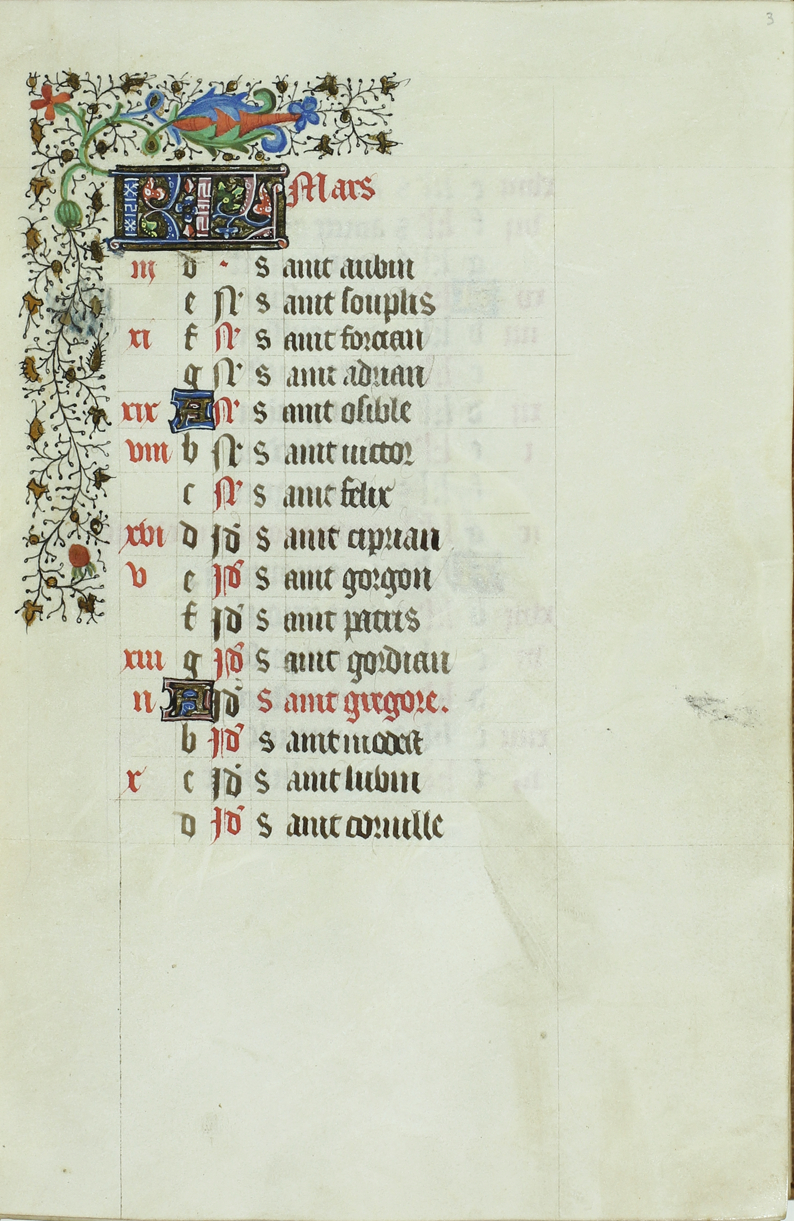 3
KL Mars
iii d · Saint aubin
e N· Saint souplis
xi f N· Saint forcian
g N· Saint adrian
xix A N· Saint osible
viii b N· Saint uictor
c N· Saint felix
xvi d Id Saint ciprian
v e Id Saint gorgon
f Id Saint patris
xiii g Id Saint gordian
ii A Id Saint gregore.
b Id Saint modest
x c Id Saint lubin
d Id Saint cornille